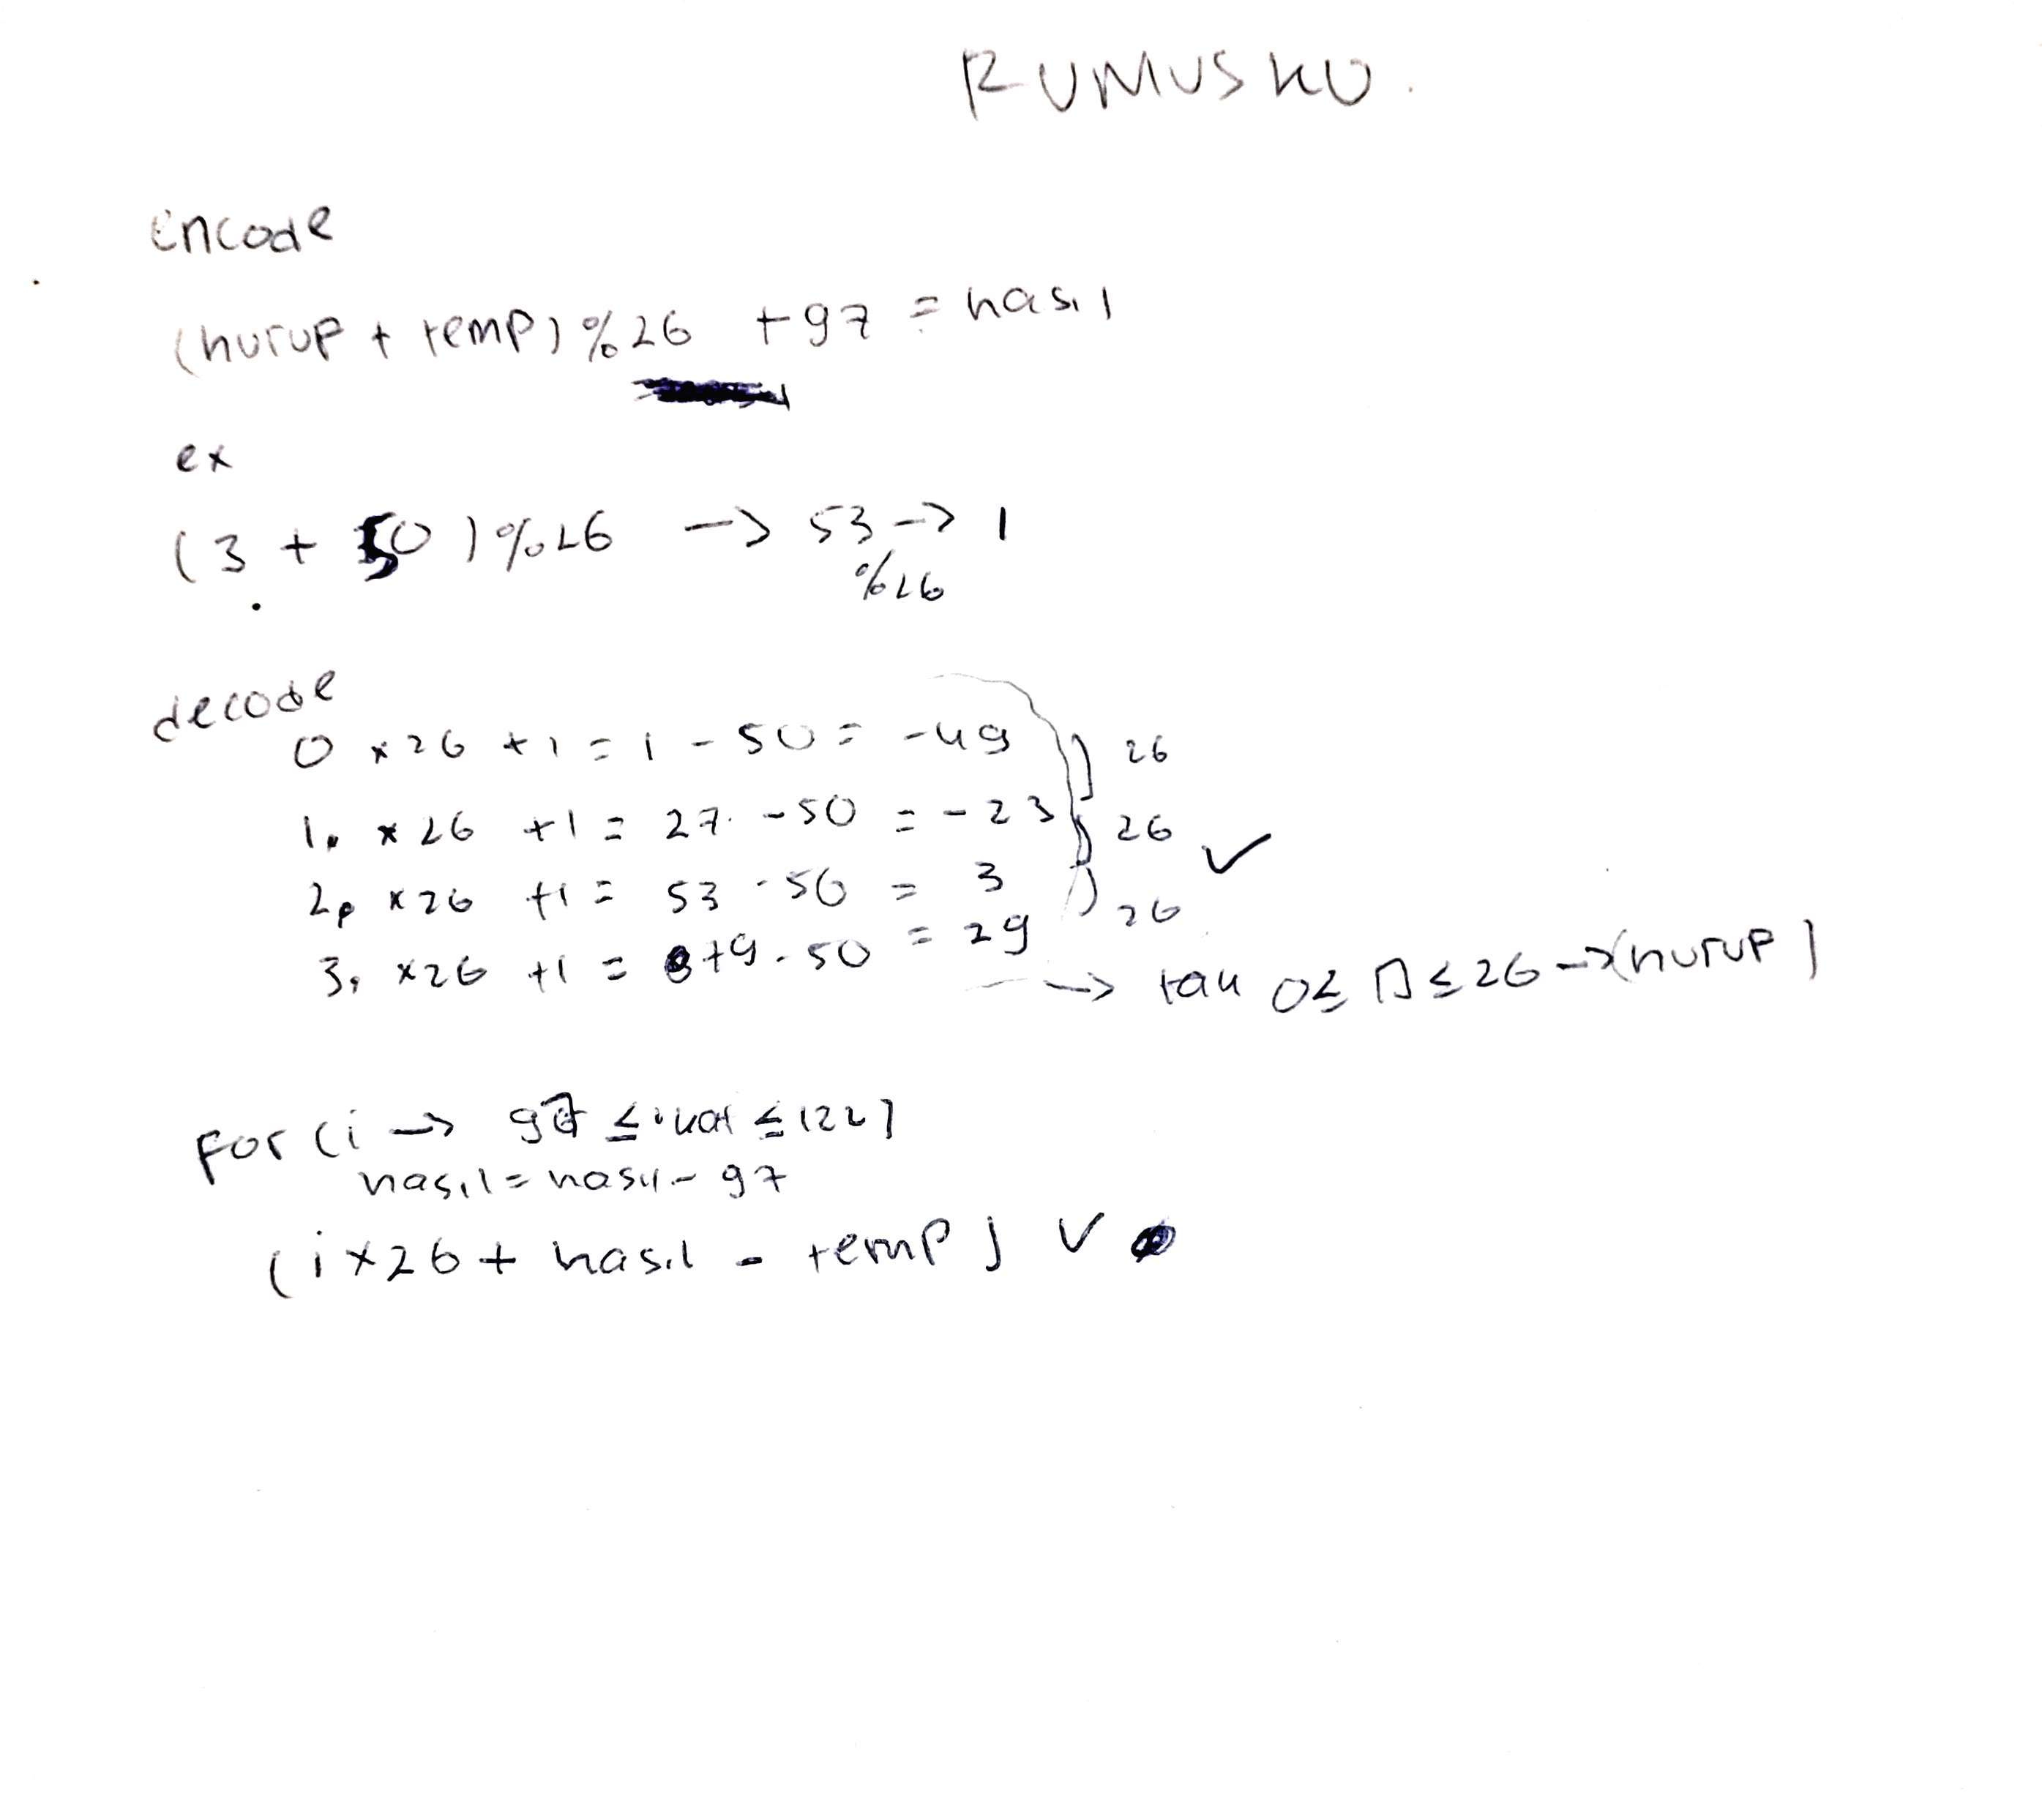 RUMUSKU.
encode
(hurup + temp) % 26 + 97 = hasil
ex
(3 + 50) % 26 -> 53 -> 1
% 26
decode
0 x 26 + 1 = 1 - 50 = -49 26
1. x 26 + 1 = 27. - 50 = -23 26
2. x 26 + 1 = 53 - 50 = 3 26
3. x 26 + 1 = 79 - 50 = 29
-> 0 ≤ ≤ 26 -> (hurup)
For (i -> 97 ≤ ≤ 122)
hasil = hasil - 97
(i x 26 + hasil - temp)